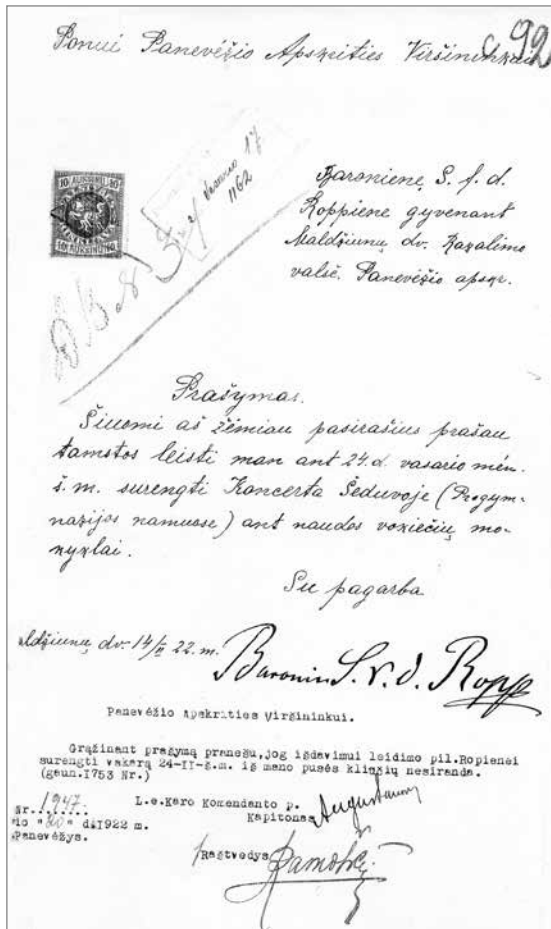 Ponui Panevėžio Apskrities Viršininkui
92
10 AUKSINŲ 10
10 AUKSINŲ 10
Vasario 17
1162
Baronienė, S. f. d.
Roppiene gyvenant
Maldžiunų dv. Rozalimo
valsč. Panevėžio apskr.
Prašymas.
Šiuomi aš žemiau pasirašius prašau
tamstos leisti man ant 24.d. vasario mėn.
š.m. surengti Koncerta Šeduvoje (Progym-
nazijos namuose) ant naudos vokiečių mo-
kyklai.
Su pagarba
aldžiunų dv. 14/II 22. m.
Baronin S. v. d. Ropp
Panevėžio Apskrities Viršininkui.
Grąžinant prašymą pranešu, jog išdavimui leidimo pil. Ropienei
surengti vakarą 24-II-š.m. iš mano pusės kliučių nesiranda.
(gaun. I753 Nr.)
Nr. 1947.
io "20" d. II 1922 m.
Panevėžys.
L.e. Karo Komendanto p.
Kapitonas
Raštvedys